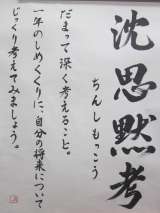 沈思黙考
ちんしもっこう
だまって深く考えること。
一年のしめくくりに、自分の将来について
じっくり考えてみましょう。